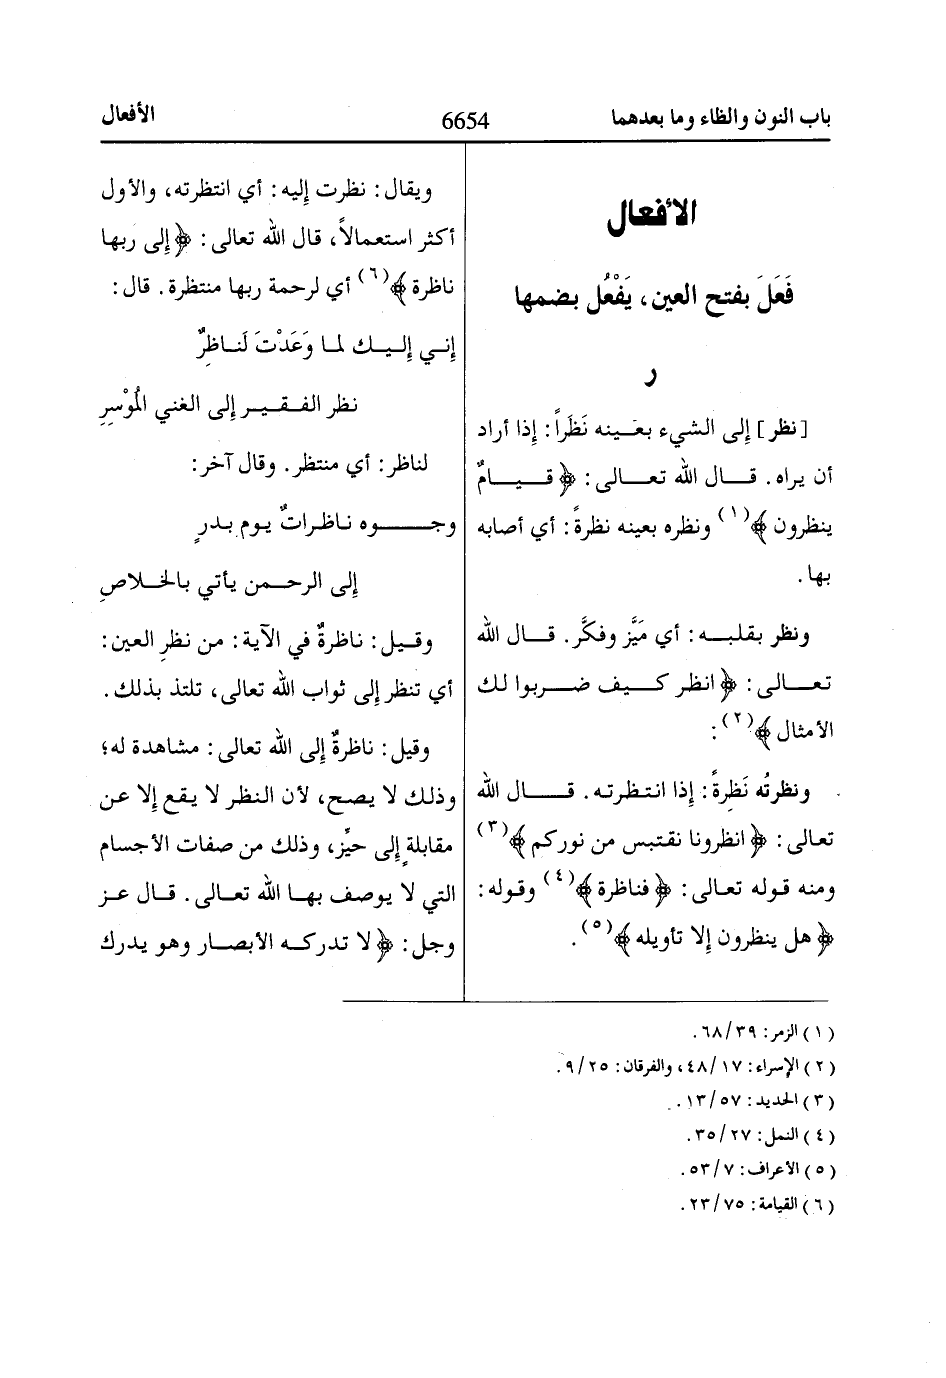 باب النون والظاء وما بعدهما
6654
الأفعال
الأفعال
فَعَلَ بفتح العين، يَفْعُل بضمها
ر
[نظر] إلى الشيء بعينه نَظَراً: إذا أراد
أن يراه. قال الله تعالى: ﴿قيامٌ
ينظرون﴾(١) ونظره بعينه نظرةً: أي أصابه
بها.
ونظر بقلبه: أي مَيَّز وفكَّر. قال الله
تعالى: ﴿انظر كيف ضربوا لك
الأمثال﴾(٢):
ونظرتُه نَظِرةً: إذا انتظرته. قال الله
تعالى: ﴿انظرونا نقتبس من نوركم﴾(٣)
ومنه قوله تعالى: ﴿فناظرة﴾(٤) وقوله:
﴿هل ينظرون إلا تأويله﴾(٥).
ويقال: نظرت إليه: أي انتظرته، والأول
أكثر استعمالاً، قال الله تعالى: ﴿إلى ربها
ناظرة﴾(٦) أي لرحمة ربها منتظرة. قال:
إني إليك لما وَعَدْتَ لَناظرٌ
نظر الفقير إلى الغني المُوْسرِ
لناظر: أي منتظر. وقال آخر:
وجوه ناظراتٌ يوم بدرٍ
إلى الرحمن يأتي بالخلاصِ
وقيل: ناظرةٌ في الآية: من نظرِ العين:
أي تنظر إلى ثواب الله تعالى، تلتذ بذلك.
وقيل: ناظرةٌ إلى الله تعالى: مشاهدة له؛
وذلك لا يصح، لأن النظر لا يقع إلا عن
مقابلةٍ إلى حيِّز، وذلك من صفات الأجسام
التي لا يوصف بها الله تعالى. قال عز
وجل: ﴿لا تدركه الأبصار وهو يدرك
(١) الزمر: ٦٨/٣٩.
(٢) الإسراء: ٤٨/١٧، والفرقان: ٩/٢٥.
(٣) الحديد: ١٣/٥٧.
(٤) النمل: ٣٥/٢٧.
(٥) الأعراف: ٥٣/٧.
(٦) القيامة: ٢٣/٧٥.